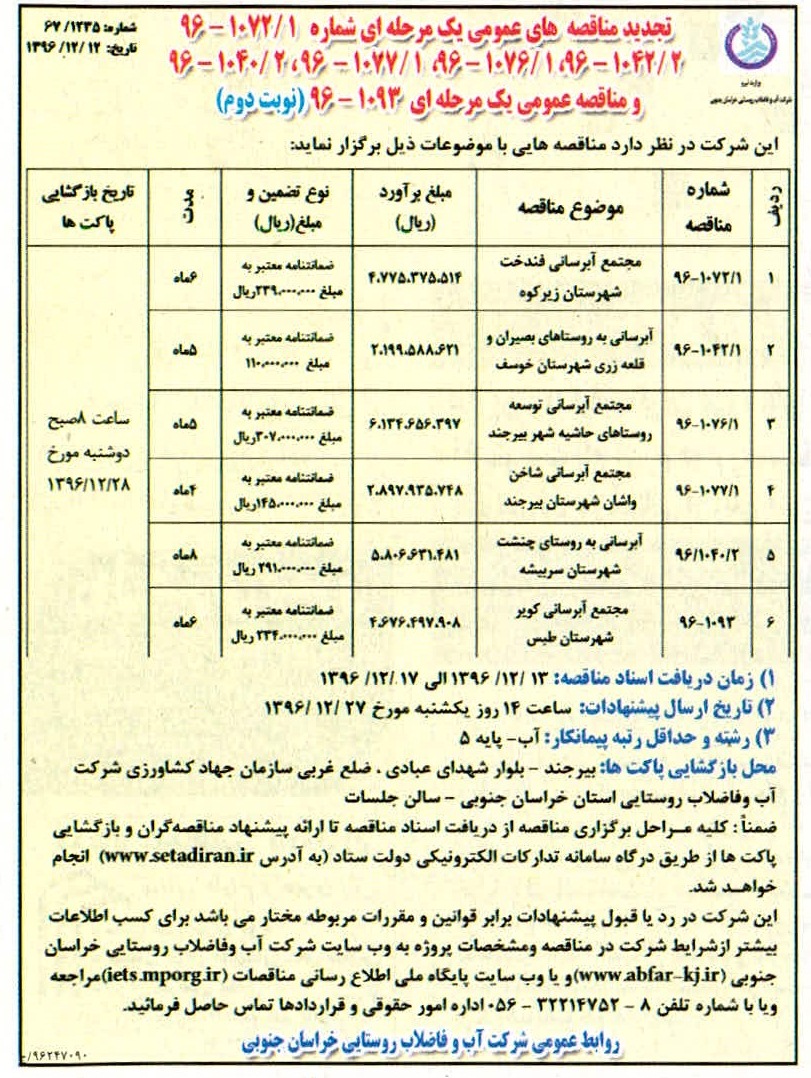 شماره: ۶۷/۱۲۳۵
تاریخ: ۱۳۹۶/۱۲/۱۲
وزارت نیرو
شرکت آب و فاضلاب روستایی خراسان جنوبی
تجدید مناقصه های عمومی یک مرحله ای شماره ۱۰۷۲/۱ – ۹۶
۱۰۴۲/۲ – ۹۶، ۱۰۷۶/۱ – ۹۶، ۱۰۷۷/۱ – ۹۶، ۱۰۴۰/۲ – ۹۶
و مناقصه عمومی یک مرحله ای ۱۰۹۳ – ۹۶ (نوبت دوم)
این شرکت در نظر دارد مناقصه هایی با موضوعات ذیل برگزار نماید:
ردیف | شماره مناقصه | موضوع مناقصه | مبلغ برآورد (ریال) | نوع تضمین و مبلغ(ریال) | مدت | تاریخ بازگشایی پاکت ها
۱ | ۹۶-۱۰۷۲/۱ | مجتمع آبرسانی فندخت شهرستان زیرکوه | ۴.۷۷۵.۳۷۵.۵۱۴ | ضمانتنامه معتبر به مبلغ ۲۳۹.۰۰۰.۰۰۰ریال | ۶ماه
۲ | ۹۶-۱۰۴۲/۱ | آبرسانی به روستاهای بصیران و قلعه زری شهرستان خوسف | ۲.۱۹۹.۵۸۸.۶۲۱ | ضمانتنامه معتبر به مبلغ ۱۱۰.۰۰۰.۰۰۰ | ۵ماه
۳ | ۹۶-۱۰۷۶/۱ | مجتمع آبرسانی توسعه روستاهای حاشیه شهر بیرجند | ۶.۱۳۴.۶۵۶.۳۹۷ | ضمانتنامه معتبر به مبلغ ۳۰۷.۰۰۰.۰۰۰ریال | ۵ماه | ساعت ۸صبح دوشنبه مورخ ۱۳۹۶/۱۲/۲۸
۴ | ۹۶-۱۰۷۷/۱ | مجتمع آبرسانی شاخن واشان شهرستان بیرجند | ۲.۸۹۷.۹۳۵.۷۴۸ | ضمانتنامه معتبر به مبلغ ۱۴۵.۰۰۰.۰۰۰ریال | ۴ماه
۵ | ۹۶/۱۰۴۰/۲ | آبرسانی به روستای چنشت شهرستان سربیشه | ۵.۸۰۶.۶۳۱.۴۸۱ | ضمانتنامه معتبر به مبلغ ۲۹۱.۰۰۰.۰۰۰ ریال | ۸ماه
۶ | ۹۶-۱۰۹۳ | مجتمع آبرسانی کویر شهرستان طبس | ۴.۶۷۶.۴۹۷.۹۰۸ | ضمانتنامه معتبر به مبلغ ۲۳۴.۰۰۰.۰۰۰ ریال | ۶ماه
۱) زمان دریافت اسناد مناقصه: ۱۳ /۱۲/ ۱۳۹۶ الی ۱۷ /۱۲/ ۱۳۹۶
۲) تاریخ ارسال پیشنهادات: ساعت ۱۴ روز یکشنبه مورخ ۲۷ /۱۲/ ۱۳۹۶
۳) رشته و حداقل رتبه پیمانکار: آب- پایه ۵
محل بازگشایی پاکت ها: بیرجند – بلوار شهدای عبادی ، ضلع غربی سازمان جهاد کشاورزی شرکت
آب وفاضلاب روستایی استان خراسان جنوبی – سالن جلسات
ضمناً : کلیه مراحل برگزاری مناقصه از دریافت اسناد مناقصه تا ارائه پیشنهاد مناقصه‌گران و بازگشایی
پاکت ها از طریق درگاه سامانه تدارکات الکترونیکی دولت ستاد (به آدرس www.setadiran.ir) انجام
خواهد شد.
این شرکت در رد یا قبول پیشنهادات برابر قوانین و مقررات مربوطه مختار می باشد برای کسب اطلاعات
بیشتر ازشرایط شرکت در مناقصه ومشخصات پروژه به وب سایت شرکت آب وفاضلاب روستایی خراسان
جنوبی (www.abfar-kj.ir)و یا وب سایت پایگاه ملی اطلاع رسانی مناقصات (iets.mporg.ir)مراجعه
ویا با شماره تلفن ۸ – ۳۲۲۱۴۷۵۲ – ۰۵۶ اداره امور حقوقی و قراردادها تماس حاصل فرمائید.
روابط عمومی شرکت آب و فاضلاب روستایی خراسان جنوبی
/۹۶۲۴۷۰۹۰